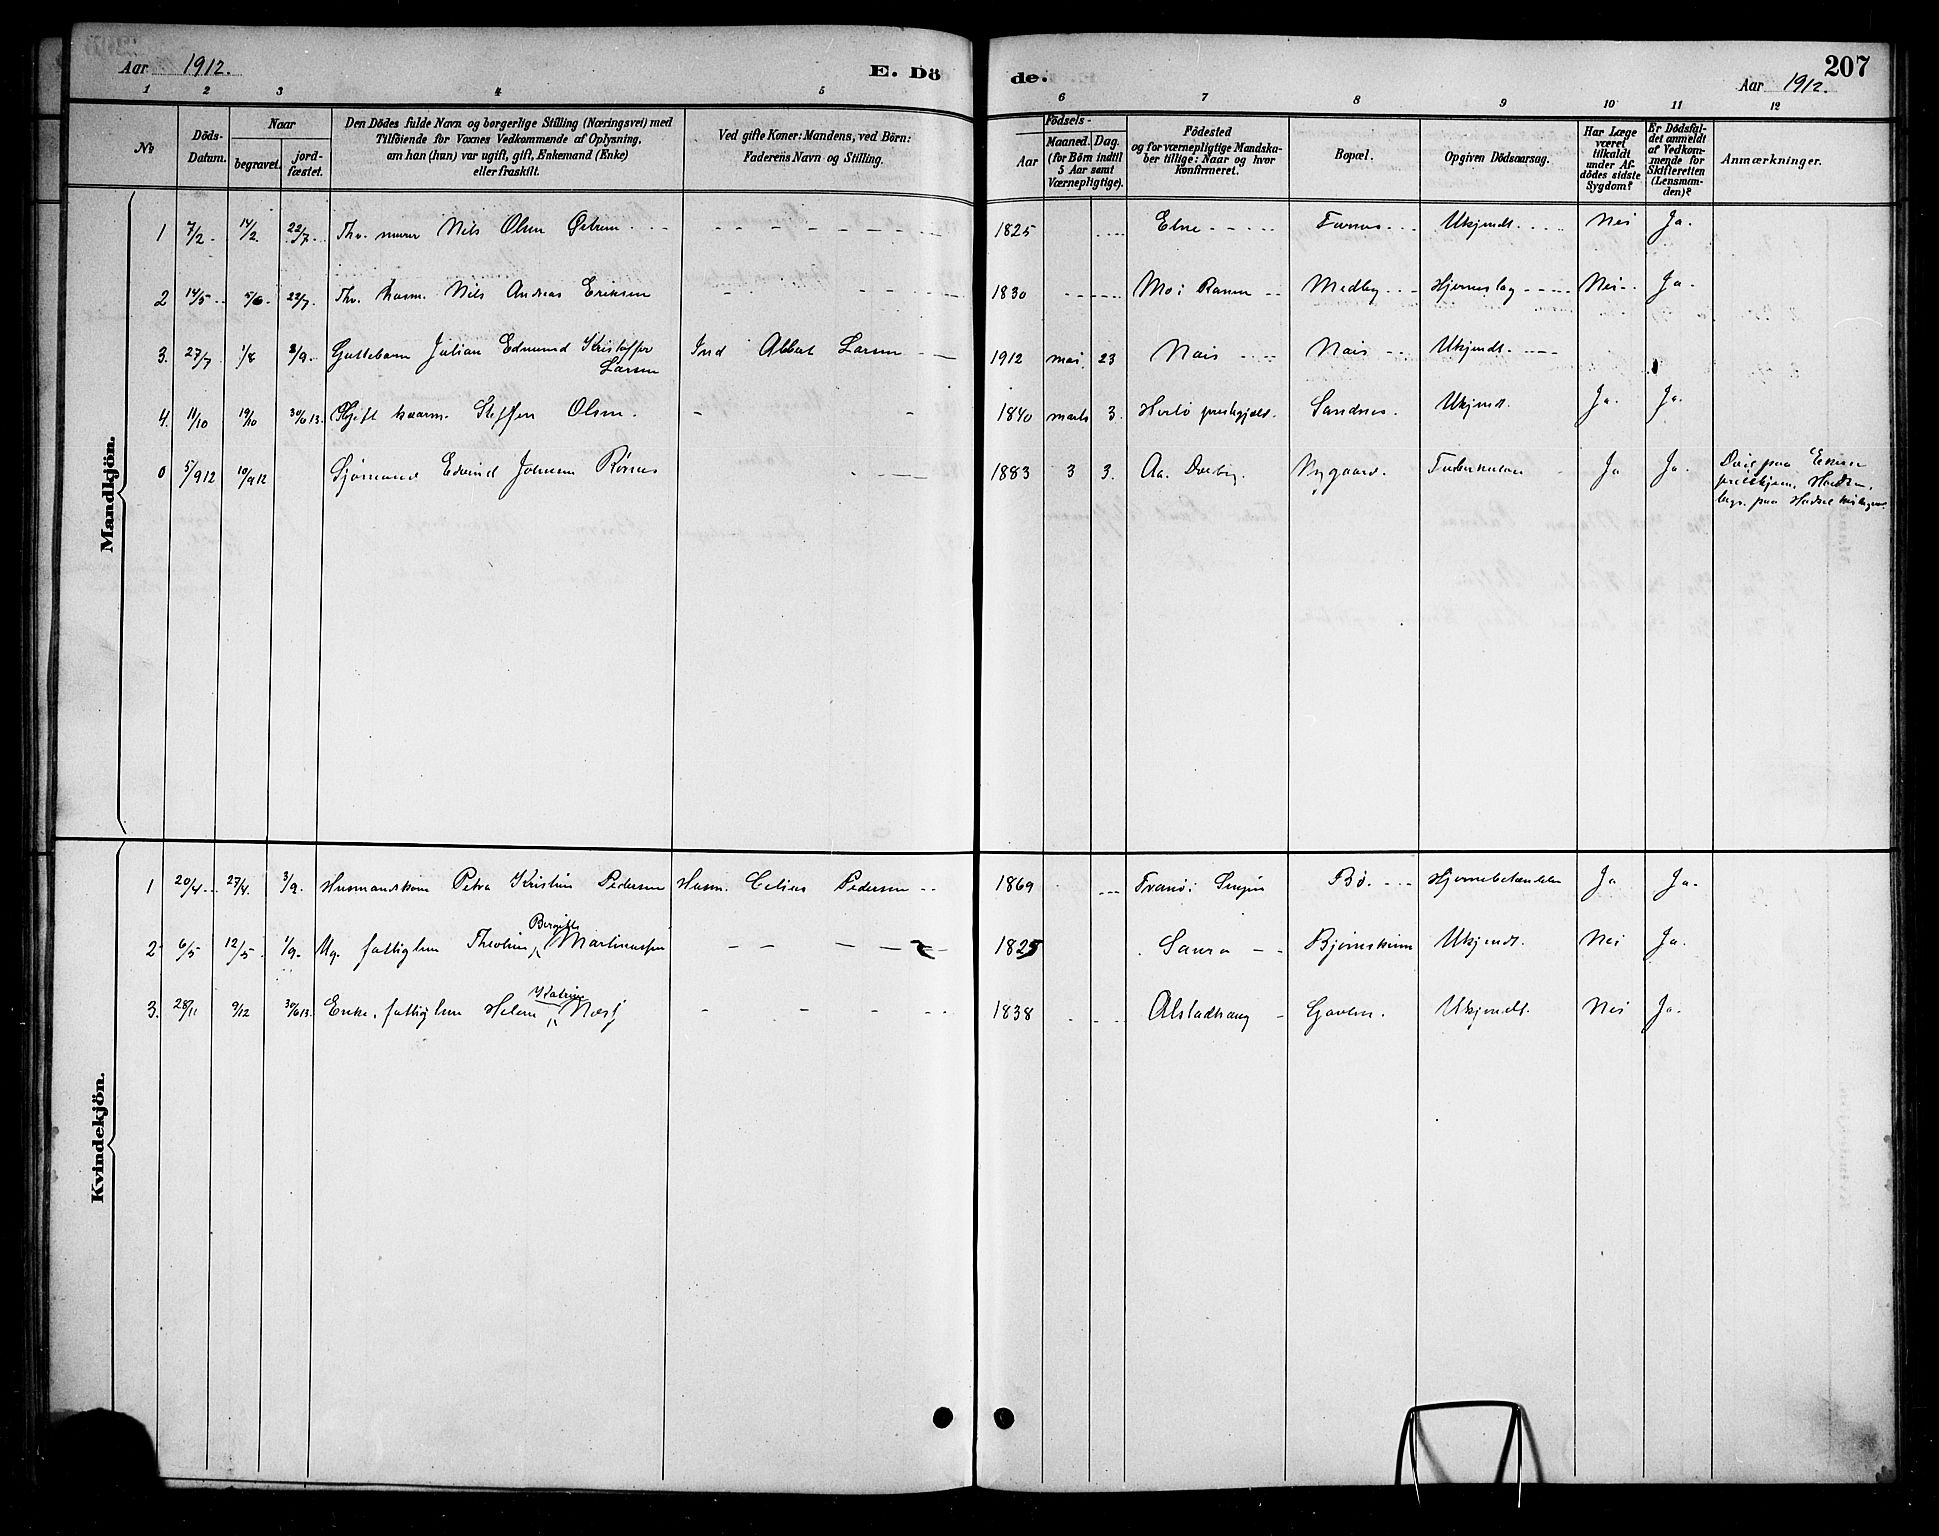 Aar 1912.
E. Dö
de.
207
Aar 1912.
1 2 3 4 5 6 7 8 9 10 11 12
№
Döds-
Datum.
Naar
begravet.
jord-
fæstet.
Den Dödes fulde Navn og borgerlige Stilling (Næringsvei) med
Tilföiende for Voxnes Vedkommende af Oplysning,
om han (hun) var ugift, gift, Enkemand (Enke)
eller fraskilt.
Ved gifte Koner: Mandens, ved Börn:
Faderens Navn og Stilling.
Födsels-
Aar
Maaned. Dag.
(for Börn indtil
5 Aar samt
Værnepligtige).
Födested
og for værnepligtige Mandska-
ber tillige: Naar og hvor
konfirmeret.
Bopæl.
Opgiven Dödsaarsag.
Har Læge
været
tilkaldt
under Af-
dödes sidste
Sygdom?
Er Dödsfal-
det anmeldt
af Vedkom-
mende for
Skifteretten
(Lensman-
den)?
Anmærkninger.
Mandkjön.
1 7/2 14/2. 22/7. Thv. murer Nils Olsen 1825 Ukjendt. Nei Ja.
2 14/5 5/6 22/7. Thv. husm. Nils Andreas Eriksen 1830 Mo i Ranen Medby Hjerneslag Nei Ja.
3. 27/7 1/8 3/9. Guttebarn Julian Edmund Kristoffer
Larsen Ind Albert Larsen 1912 mai. 23 Nais Nais Ukjendt.
4. 11/10 19/10 30/6 13. Gift Steffen Olsen. 1840 marts 3. prestegjeld. Sandnes. Ukjendt. Ja. Ja.
0 5/9 12 10/9 12 Sjømand Edvind Johnsen Rörnes 1883 3 3. Nygaard. Ja Ja.
Kvindekjön.
1 20/4 27/4. 3/9. Husmandskone Petra Kristine Pedersen Husm. Pedersen 1869 Tranö i Senjen Bö. Hjernebetændelse Ja Ja.
2 6/5 12/5 1/9. Ug. fattiglem Theoline Bergitte Martinussen 1825 Saura Ukjendt. Nei Ja.
3. 28/11 9/12 30/6 13. Enke, fattiglem Helene Katrine 1838 Alstadhaug Ukjendt. Nei Ja.